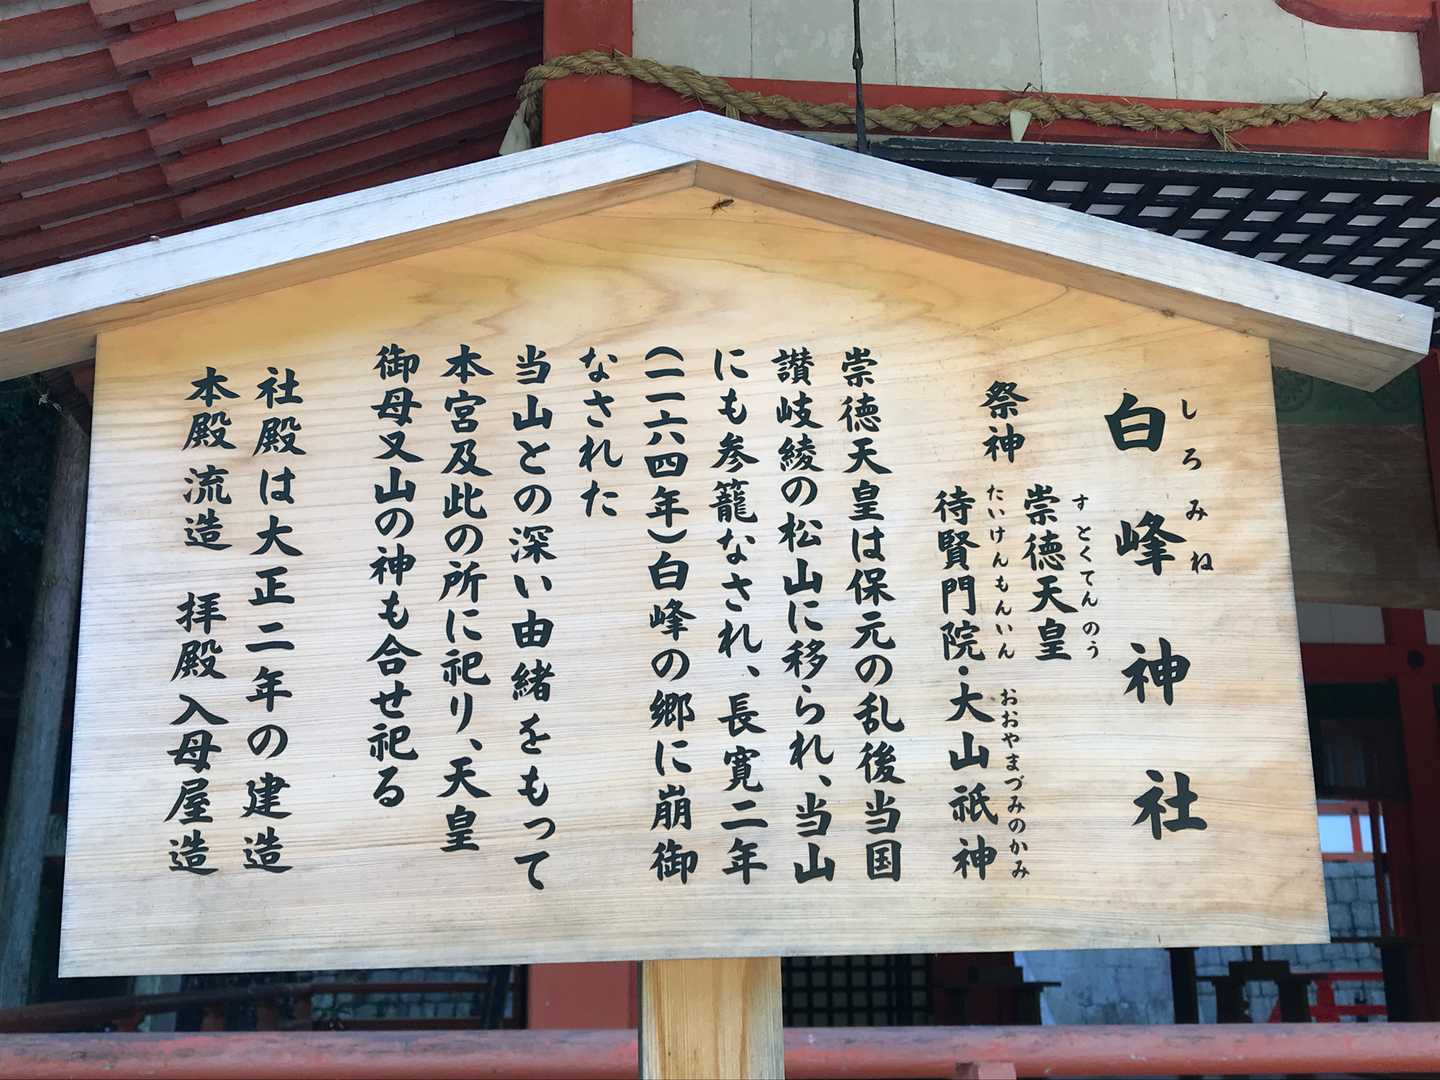 白峰神社
しろみね
祭神
崇徳天皇
すとくてんのう
待賢門院・大山祇神
たいけんもんいん
おおやまづみのかみ
崇徳天皇は保元の乱後当国
讃岐綾の松山に移られ、当山
にも参籠なされ、長寛二年
(一一六四年)白峰の郷に崩御
なされた
当山との深い由緒をもって
本宮及此の所に祀り、天皇
御母又山の神も合せ祀る
社殿は大正二年の建造
本殿流造 拝殿入母屋造